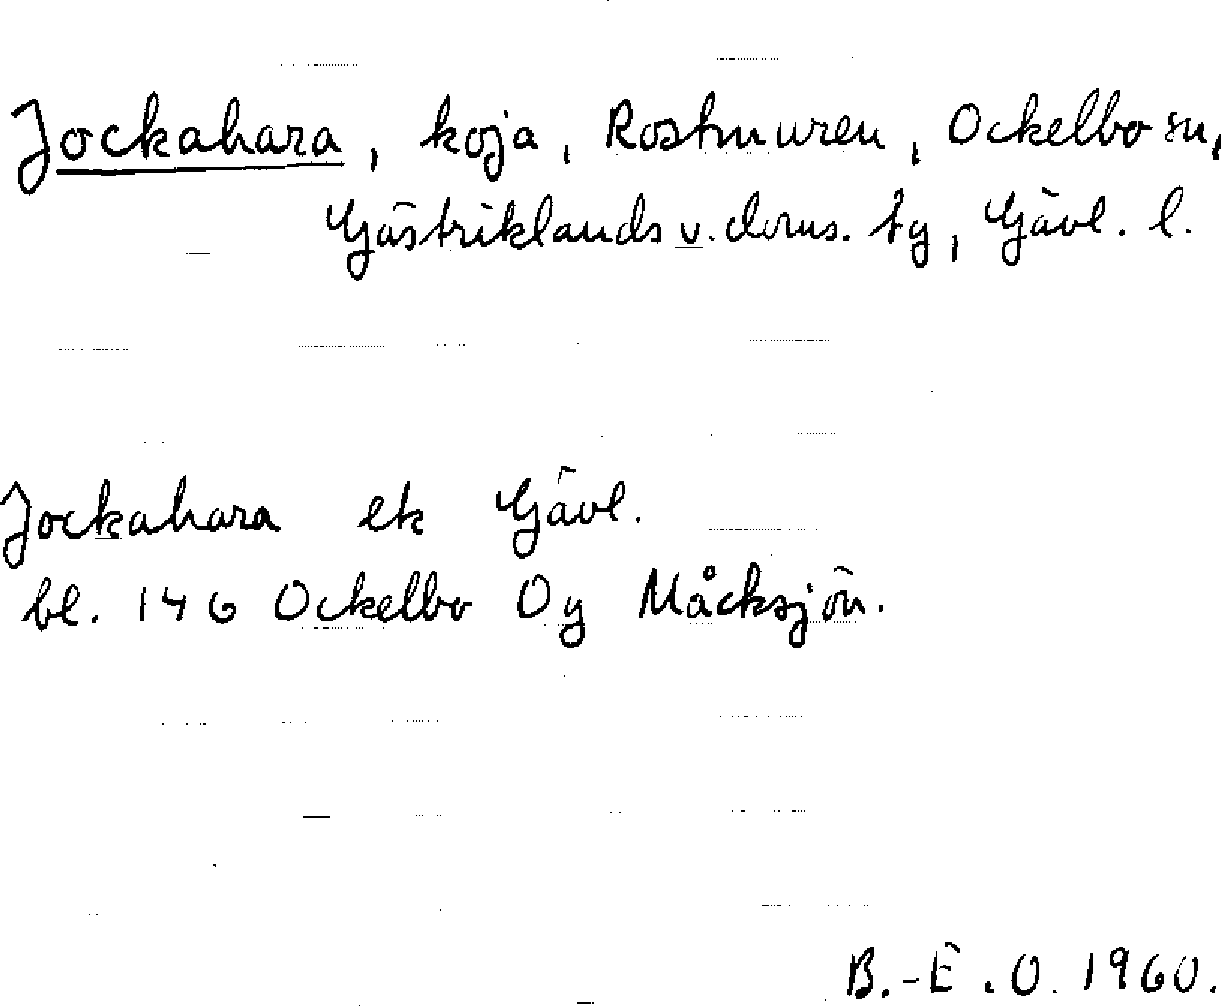 Jockahara, koja, Rostmuren, Ockelbo sn,
Gästriklands v. doms. tg, Gävl. l.
Jockahara ek Gävl.
bl. 146 Ockelbo Og Måcksjön.
B.-E.O. 1960.